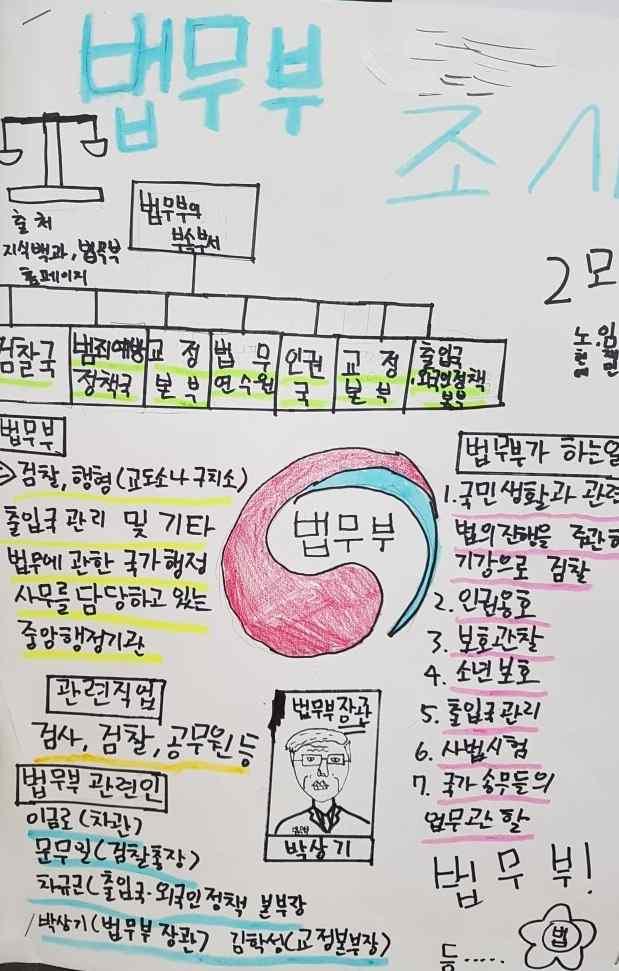 법무부
조사
출처
지식백과, 법무부
홈페이지
법무부의
부속부서
2모
검찰국
범죄예방
정책국
교정
본부
법무
연수원
인권
국
교정
본부
출입국
·외국인정책
본부
법무부
검찰, 행형(교도소나 구치소)
출입국 관리 및 기타
법무에 관한 국가행정
사무를 담당하고 있는
중앙행정기관
법무부
법무부가 하는일
1. 국민생활과 관련
법의 집행을 주관하
기강으로 검찰
2. 인권옹호
3. 보호관찰
4. 소년보호
5. 출입국관리
6. 사법시험
7. 국가 송무들의
업무관할
관련직업
검사, 검찰, 공무원 등
법무부 장관
박상기
법무부 관련인
이금로(차관)
문무일(검찰총장)
차규근(출입국·외국인정책 본부장
박상기(법무부 장관) 김학성(교정본부장)
법무부!
등.....
법